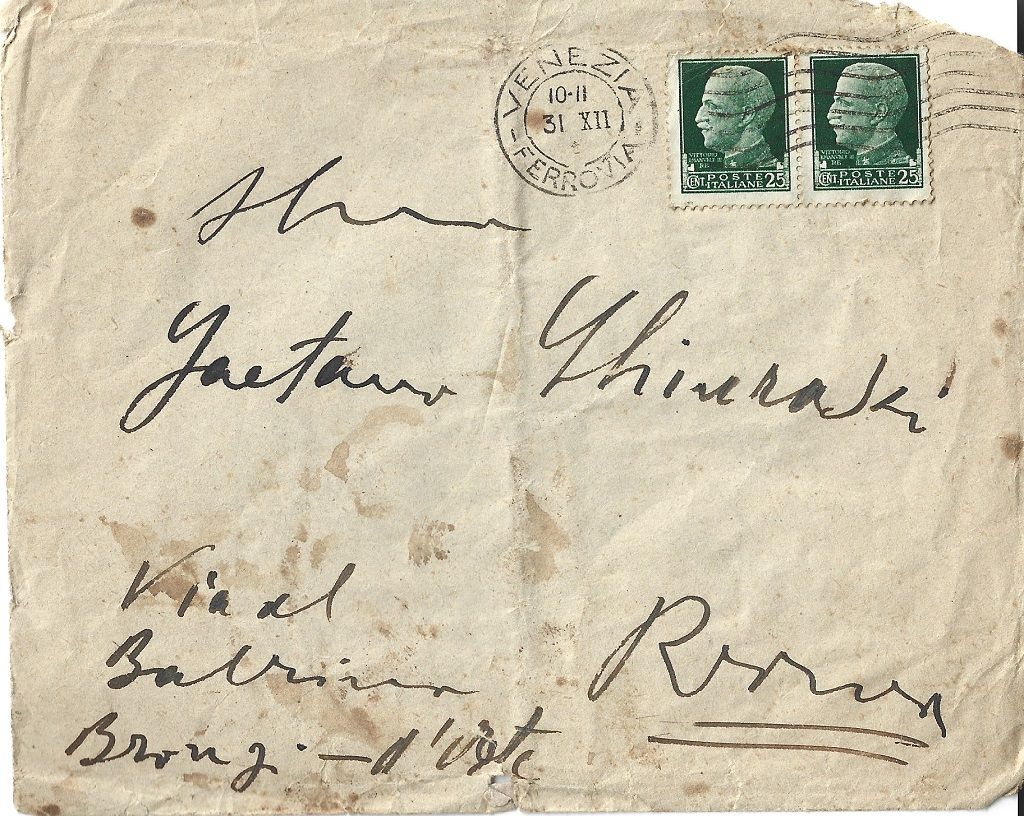 VENEZIA
10-11
31 XII
FERROVIA
VITTORIO EMANUELE III RE
CENT. POSTE ITALIANE 25
VITTORIO EMANUELE III RE
CENT. POSTE ITALIANE 25
Gaetano
Via del
Babuino
Bronzi - d'arte
Roma